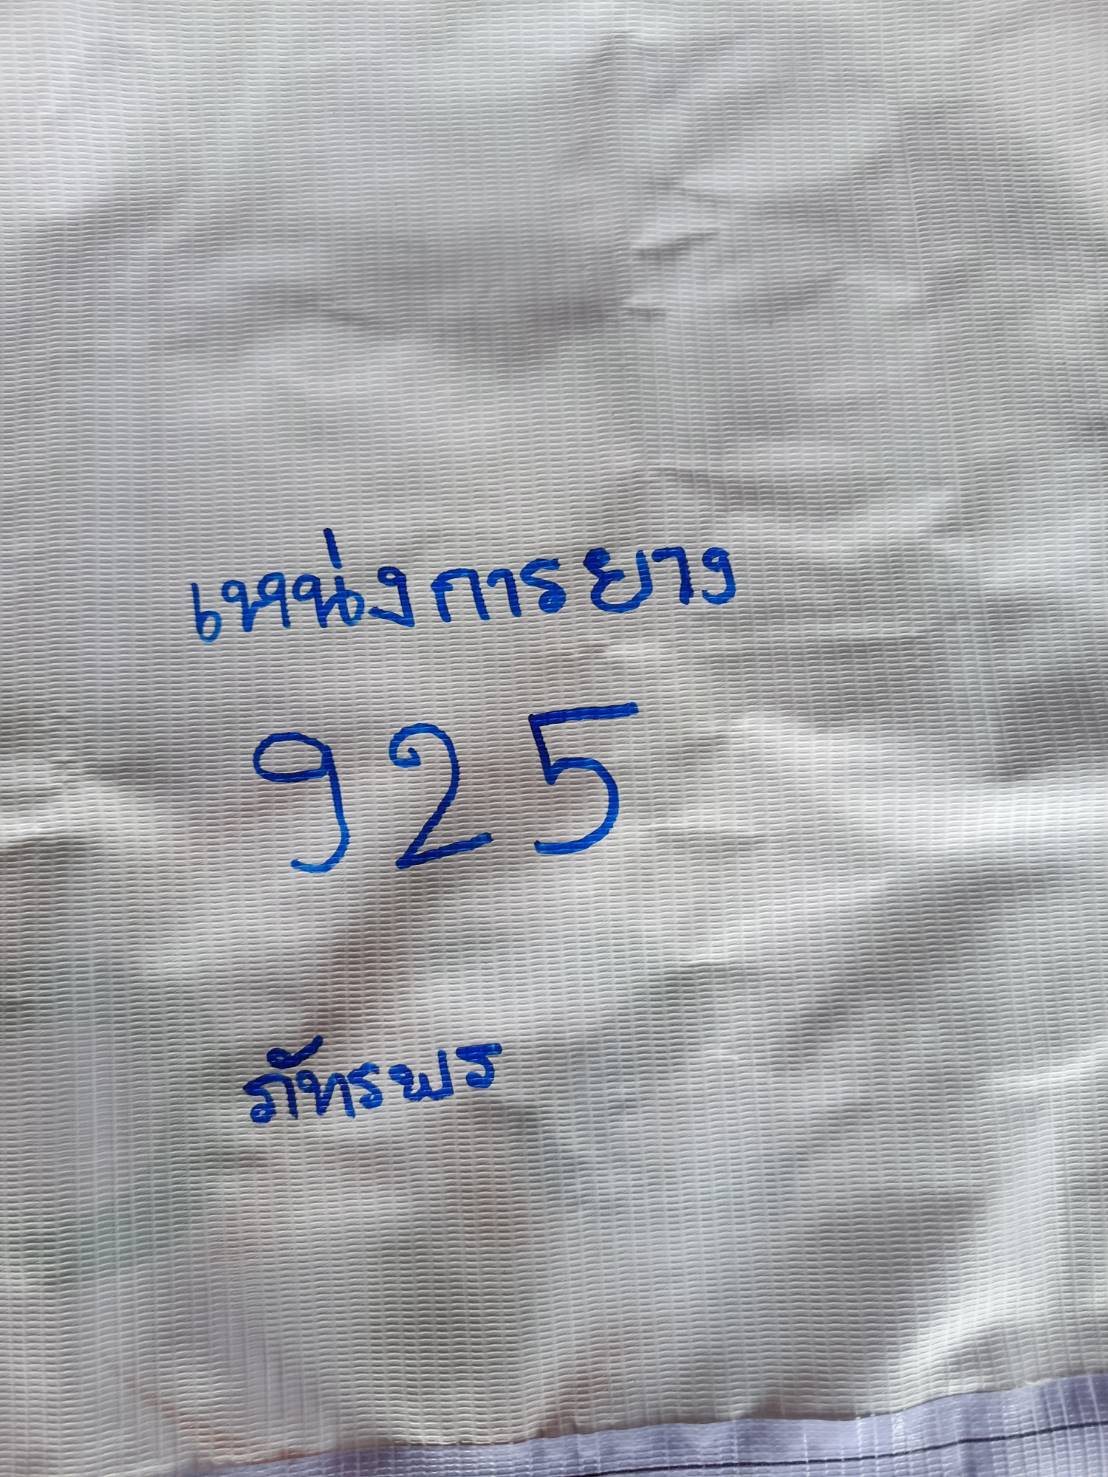 เหน่งการยาง
925
ภัทรพร